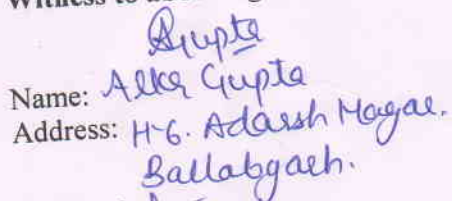 Witness to
Agupta
Name: Alka Gupta
Address: H-6. Adarsh Nagar.
Ballabgarh.